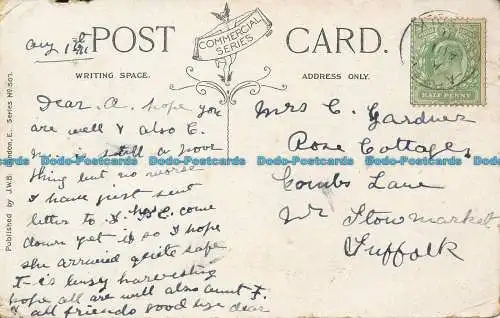 Aug 1st/11
POST CARD.
COMMERCIAL SERIES
WRITING SPACE.
ADDRESS ONLY.
HALF PENNY
Published by J.W.B. London, E. Series No. 507.
Dear A. hope you
are well & also C.
is still a poor
thing but no worse
I have just sent
letter to come
down yet if so I hope
she arrived quite safe
It is busy harvesting
hope all are well also aunt F.
& all friends good bye dear
Mrs C. Gardner
Rose Cottage
Combs Lane
Nr Stowmarket
Suffolk
Dodo-Postcards Dodo-Postcards Dodo-Postcards Dodo-Postcards